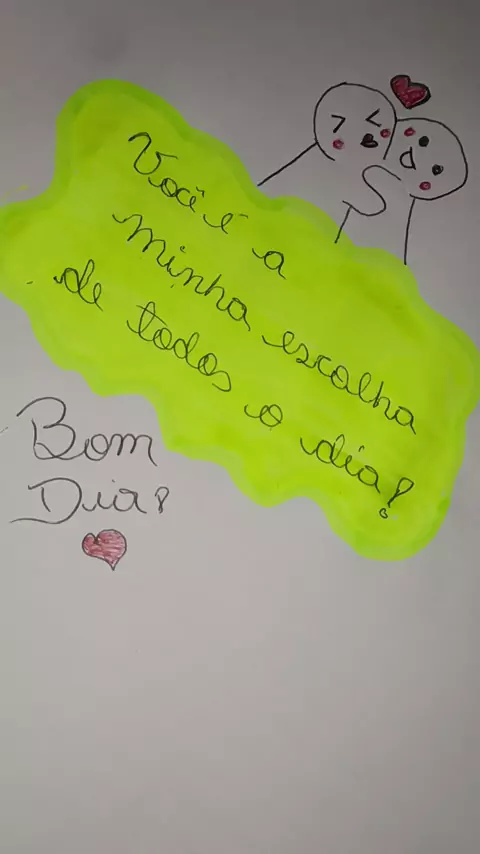 Você é a
minha escolha
de todos o dia!
Bom
Dia!